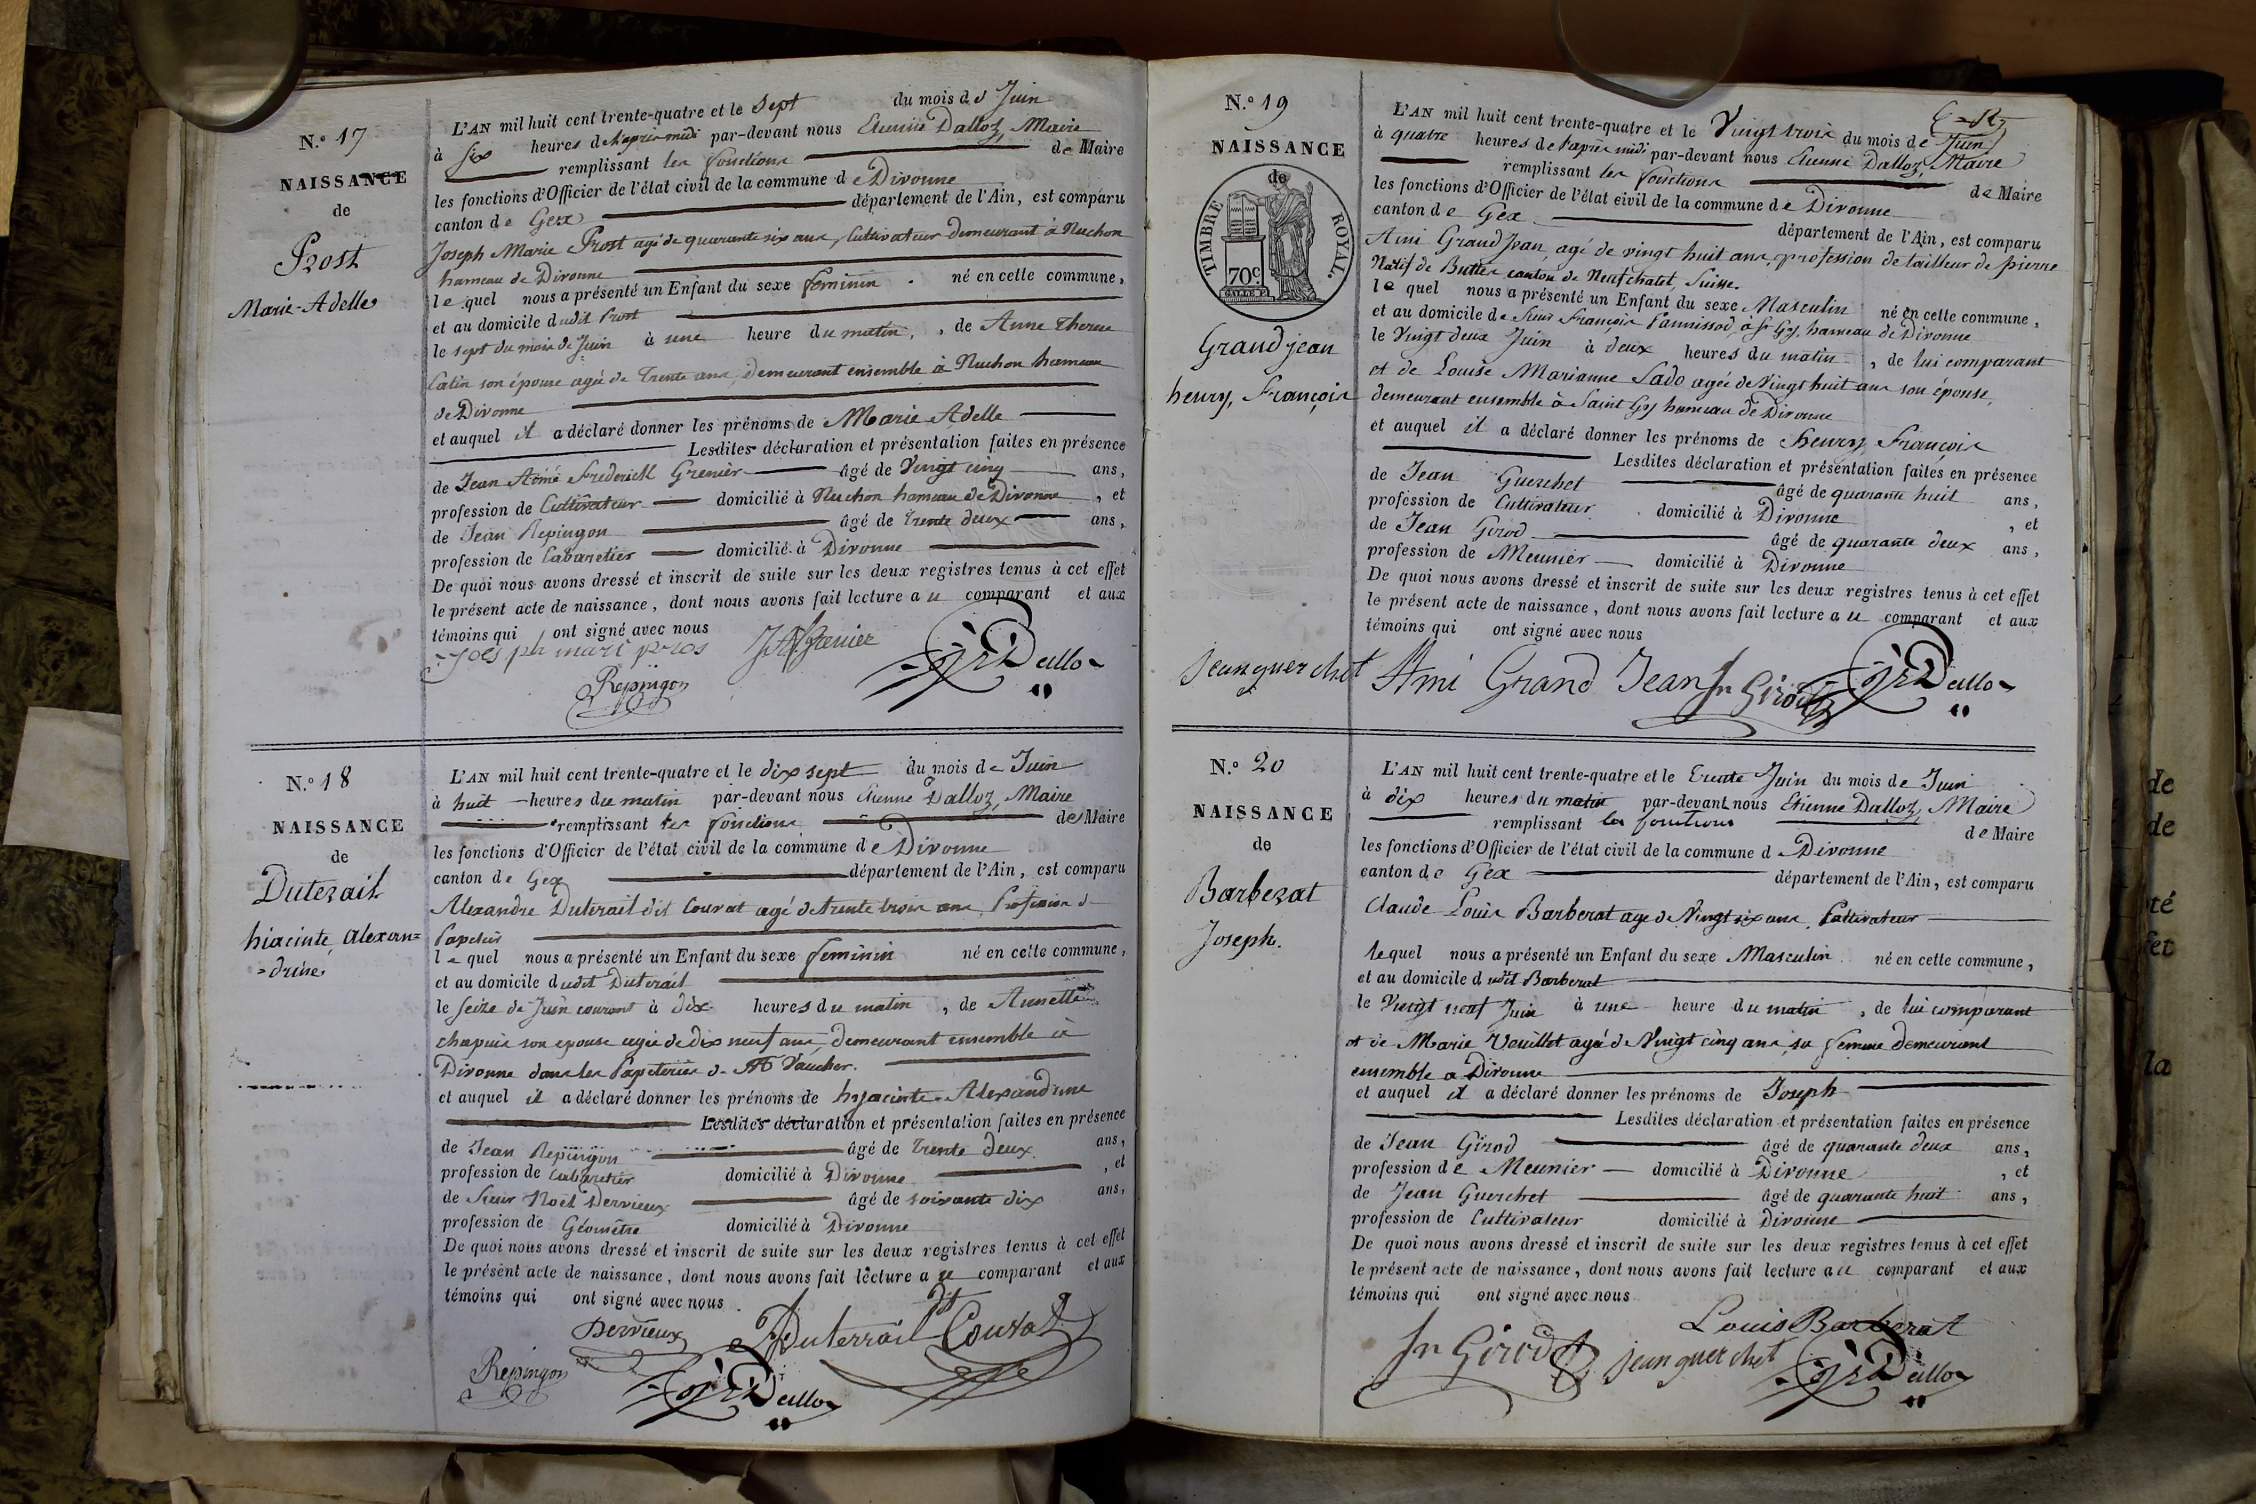 N.o 17
NAISSANCE
de
Prost
Marie-Adelle
L'AN mil huit cent trente-quatre et le sept du mois de Juin
à six heures de l'après midi par-devant nous Etienne Dalloz, Maire
remplissant les fonctions de Maire
les fonctions d'Officier de l'état civil de la commune de Divonne
canton de Gex département de l'Ain, est comparu
Joseph Marie Prost agé de quarante six ans, Cultivateur demeurant à Pluchon
hameau de Divonne
lequel nous a présenté un Enfant du sexe feminin né en cette commune,
et au domicile dudit Prost
le sept du mois de Juin à une heure du matin, de Anne Therese
Catin son épouse agée de trente ans, demeurant ensemble à Pluchon hameau
de Divonne
et auquel il a déclaré donner les prénoms de Marie Adelle
Lesdites déclaration et présentation faites en présence
de Jean Aimé Frederick Grenier âgé de Vingt cinq ans,
profession de Cultivateur domicilié à Pluchon hameau de Divonne, et
de Jean Repingon âgé de trente deux ans,
profession de Cabaretier domicilié à Divonne
De quoi nous avons dressé et inscrit de suite sur les deux registres tenus à cet effet
le présent acte de naissance, dont nous avons fait lecture au comparant et aux
témoins qui ont signé avec nous
Joesph mari pros JAfGrenier
Repingon Dalloz
N.o 18
NAISSANCE
de
Duterail
hiacinte, Alexan=
=drine
L'AN mil huit cent trente-quatre et le dix sept du mois de Juin
à huit heures du matin par-devant nous Etienne Dalloz, Maire
remplissant les fonctions de Maire
les fonctions d'Officier de l'état civil de la commune de Divonne
canton de Gex département de l'Ain, est comparu
Alexandre Duterail dit Courat agé de trente trois ans, Profession de
Papetier
lequel nous a présenté un Enfant du sexe feminin né en cette commune,
et au domicile dudit Duterail
le seize de Juin courant à dix heures du matin, de Annette
chapuis son epouse agée de dix neuf ans, demeurant ensemble à
Divonne dans les Papeteries de Mr Vaucher.
et auquel il a déclaré donner les prénoms de hyacinte Alexandrine
Lesdites déclaration et présentation faites en présence
de Jean Repingon âgé de trente deux ans,
profession de Cabaretier domicilié à Divonne, et
de Sieur Noël Dervieux âgé de soixante dix ans,
profession de Géomètre domicilié à Divonne
De quoi nous avons dressé et inscrit de suite sur les deux registres tenus à cet effet
le présent acte de naissance, dont nous avons fait lecture au comparant et aux
témoins qui ont signé avec nous
Dervieux Duterrail dit Courat
Repingon Dalloz
N.o 19
NAISSANCE
de
TIMBRE ROYAL.
70c.
Grandjean
henry, François
L'AN mil huit cent trente-quatre et le Vingt trois du mois de Juin
à quatre heures de l'après midi par-devant nous Etienne Dalloz, Maire
remplissant les fonctions de Maire
les fonctions d'Officier de l'état civil de la commune de Divonne
canton de Gex département de l'Ain, est comparu
Ami GrandJean, agé de vingt huit ans, profession de tailleur de pierre
Natif de Buttes canton de Neufchatel, Suisse.
lequel nous a présenté un Enfant du sexe Masculin né en cette commune,
et au domicile de Sieur François Pannissod, à St Gy hameau de Divonne
le Vingt deux Juin à deux heures du matin, de lui comparant
et de Louise Marianne Sado agée de Vingt huit ans son épouse,
demeurant ensemble à Saint Gy hameau de Divonne
et auquel il a déclaré donner les prénoms de henry, François
Lesdites déclaration et présentation faites en présence
de Jean Guerchet âgé de quarante huit ans,
profession de Cultivateur domicilié à Divonne, et
de Jean Girod âgé de quarante deux ans,
profession de Meunier domicilié à Divonne
De quoi nous avons dressé et inscrit de suite sur les deux registres tenus à cet effet
le présent acte de naissance, dont nous avons fait lecture au comparant et aux
témoins qui ont signé avec nous
jean guerchet Ami Grand Jean Jn Girod Dalloz
N.o 20
NAISSANCE
de
Barberat
Joseph.
L'AN mil huit cent trente-quatre et le trente Juin du mois de Juin
à dix heures du matin par-devant nous Etienne Dalloz, Maire
remplissant les fonctions de Maire
les fonctions d'Officier de l'état civil de la commune d Divonne
canton de Gex département de l'Ain, est comparu
Claude Louis Barberat age de Vingt six ans, Cultivateur
lequel nous a présenté un Enfant du sexe Masculin né en cette commune,
et au domicile dudit Barberat
le Vingt neuf Juin à une heure du matin, de lui comparant
et de Marie Vouillot agée de Vingt cinq ans, sa femme demeurant
ensemble a Divonne
et auquel il a déclaré donner les prénoms de Joseph
Lesdites déclaration et présentation faites en présence
de Jean Girod âgé de quarante deux ans,
profession de Meunier domicilié à Divonne, et
de Jean Guerchet âgé de quarante huit ans,
profession de Cultivateur domicilié à Divonne
De quoi nous avons dressé et inscrit de suite sur les deux registres tenus à cet effet
le présent acte de naissance, dont nous avons fait lecture au comparant et aux
témoins qui ont signé avec nous
Louis Barberat
Jn Girod jean guerchet Dalloz
de
de
té
fet
la